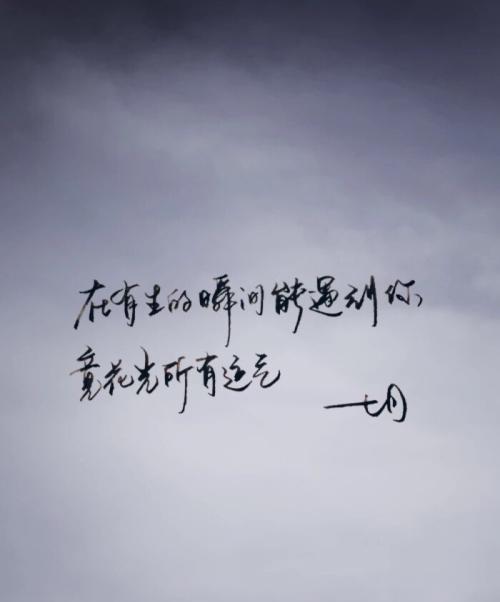 在有生的瞬间能遇到你，
竟花光所有运气
一七月